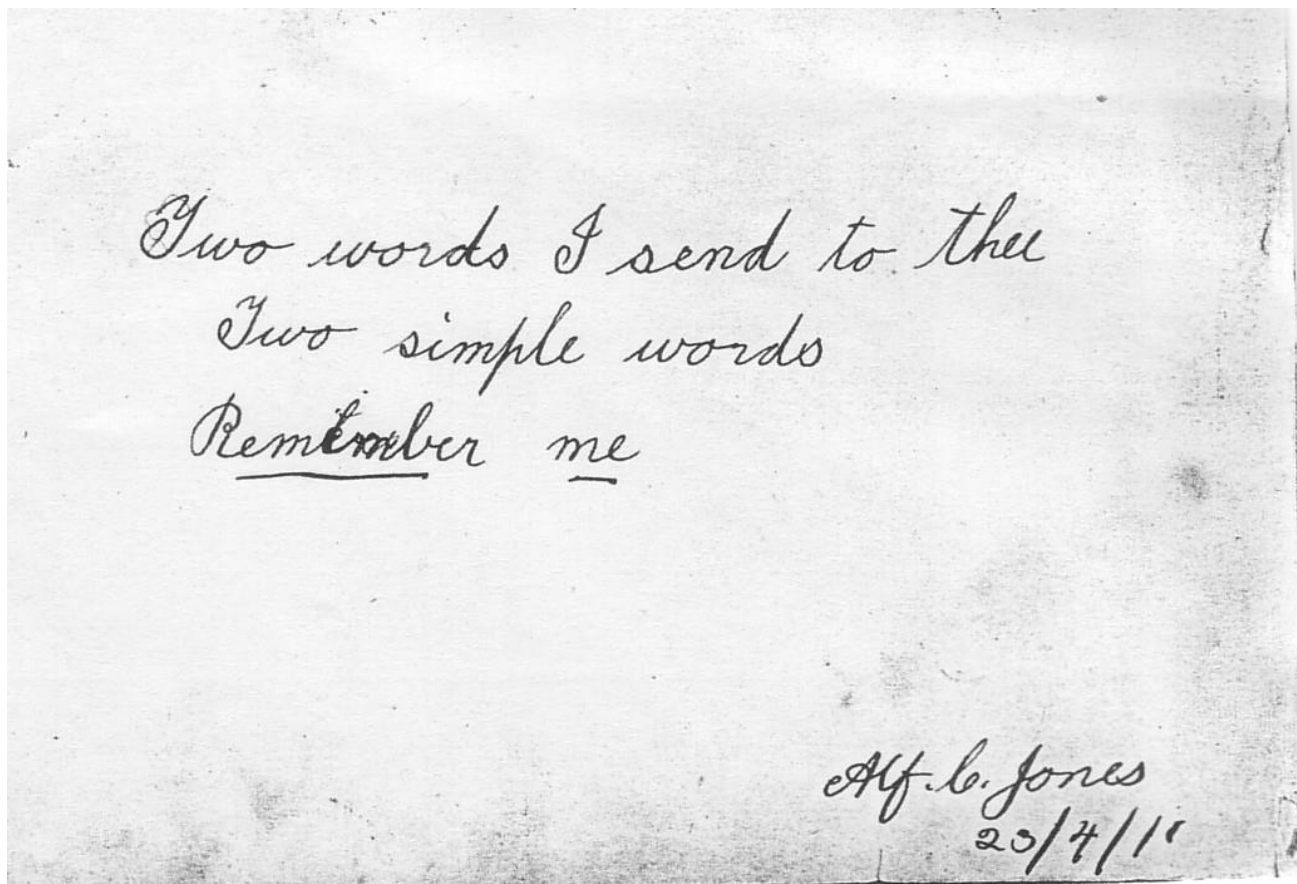 Two words I send to thee
Two simple words
Remember me
Alf. C. Jones
23/4/11